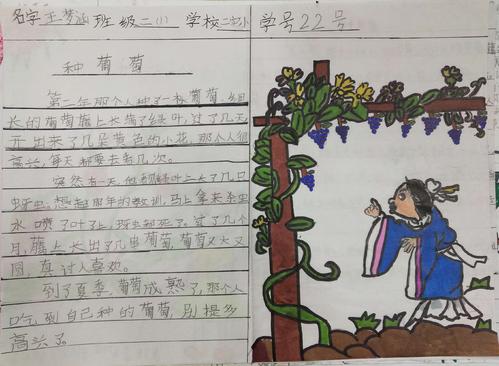 名字 王梦涵 班级二(1) 学校二实小 学号22号
种葡萄
第二年那个人种了一株葡萄,细
长的葡萄藤上长满了绿叶,过了几天
开出来了几朵黄色的小花,那个人很
高兴,每天都要去看几次。
突然有一天,他发现绿叶上长了几只
蚜虫,想起去年的教训,马上拿来杀虫
水喷了叶子上,蚜虫都死了,过了几个
月,藤上长出了几串葡萄,葡萄又大又
圆,真讨人喜欢。
到了夏季,葡萄成熟了,那个人
吃到自己种的葡萄,别提多
高兴了。